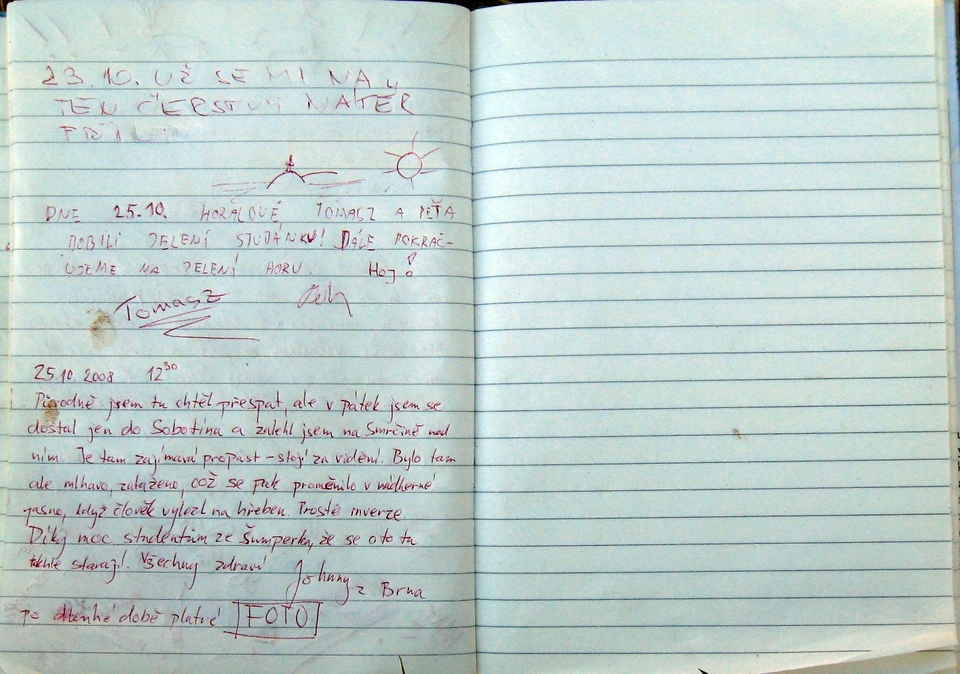 23.10. UŽ SE MI NA
TEN ČERSTVÝ NÁTĚR
DNE 25.10. HORALOVÉ TOMASZ A PEŤA
DOBILI JELENÍ STUDÁNKU! DÁLE POKRAČ-
UJEME NA JELENÍ HORU. HOJ!
Tomasz
25.10.2008 12³⁰
Původně jsem tu chtěl přespat, ale v pátek jsem se
dostal jen do Sobotína a zalehl jsem na Smrčině nad
ním. Je tam zajímavá propast - stojí za vidění. Bylo tam
ale mlhavo, zataženo, což se pak proměnilo v nádherné
jasno, když člověk vylezl na hřeben. Prostě inverze.
Díky moc studentům ze Šumperka, že se o to tu
takhle starají! Všechny zdraví
Johnny z Brna
po dlouhé době platné FOTO